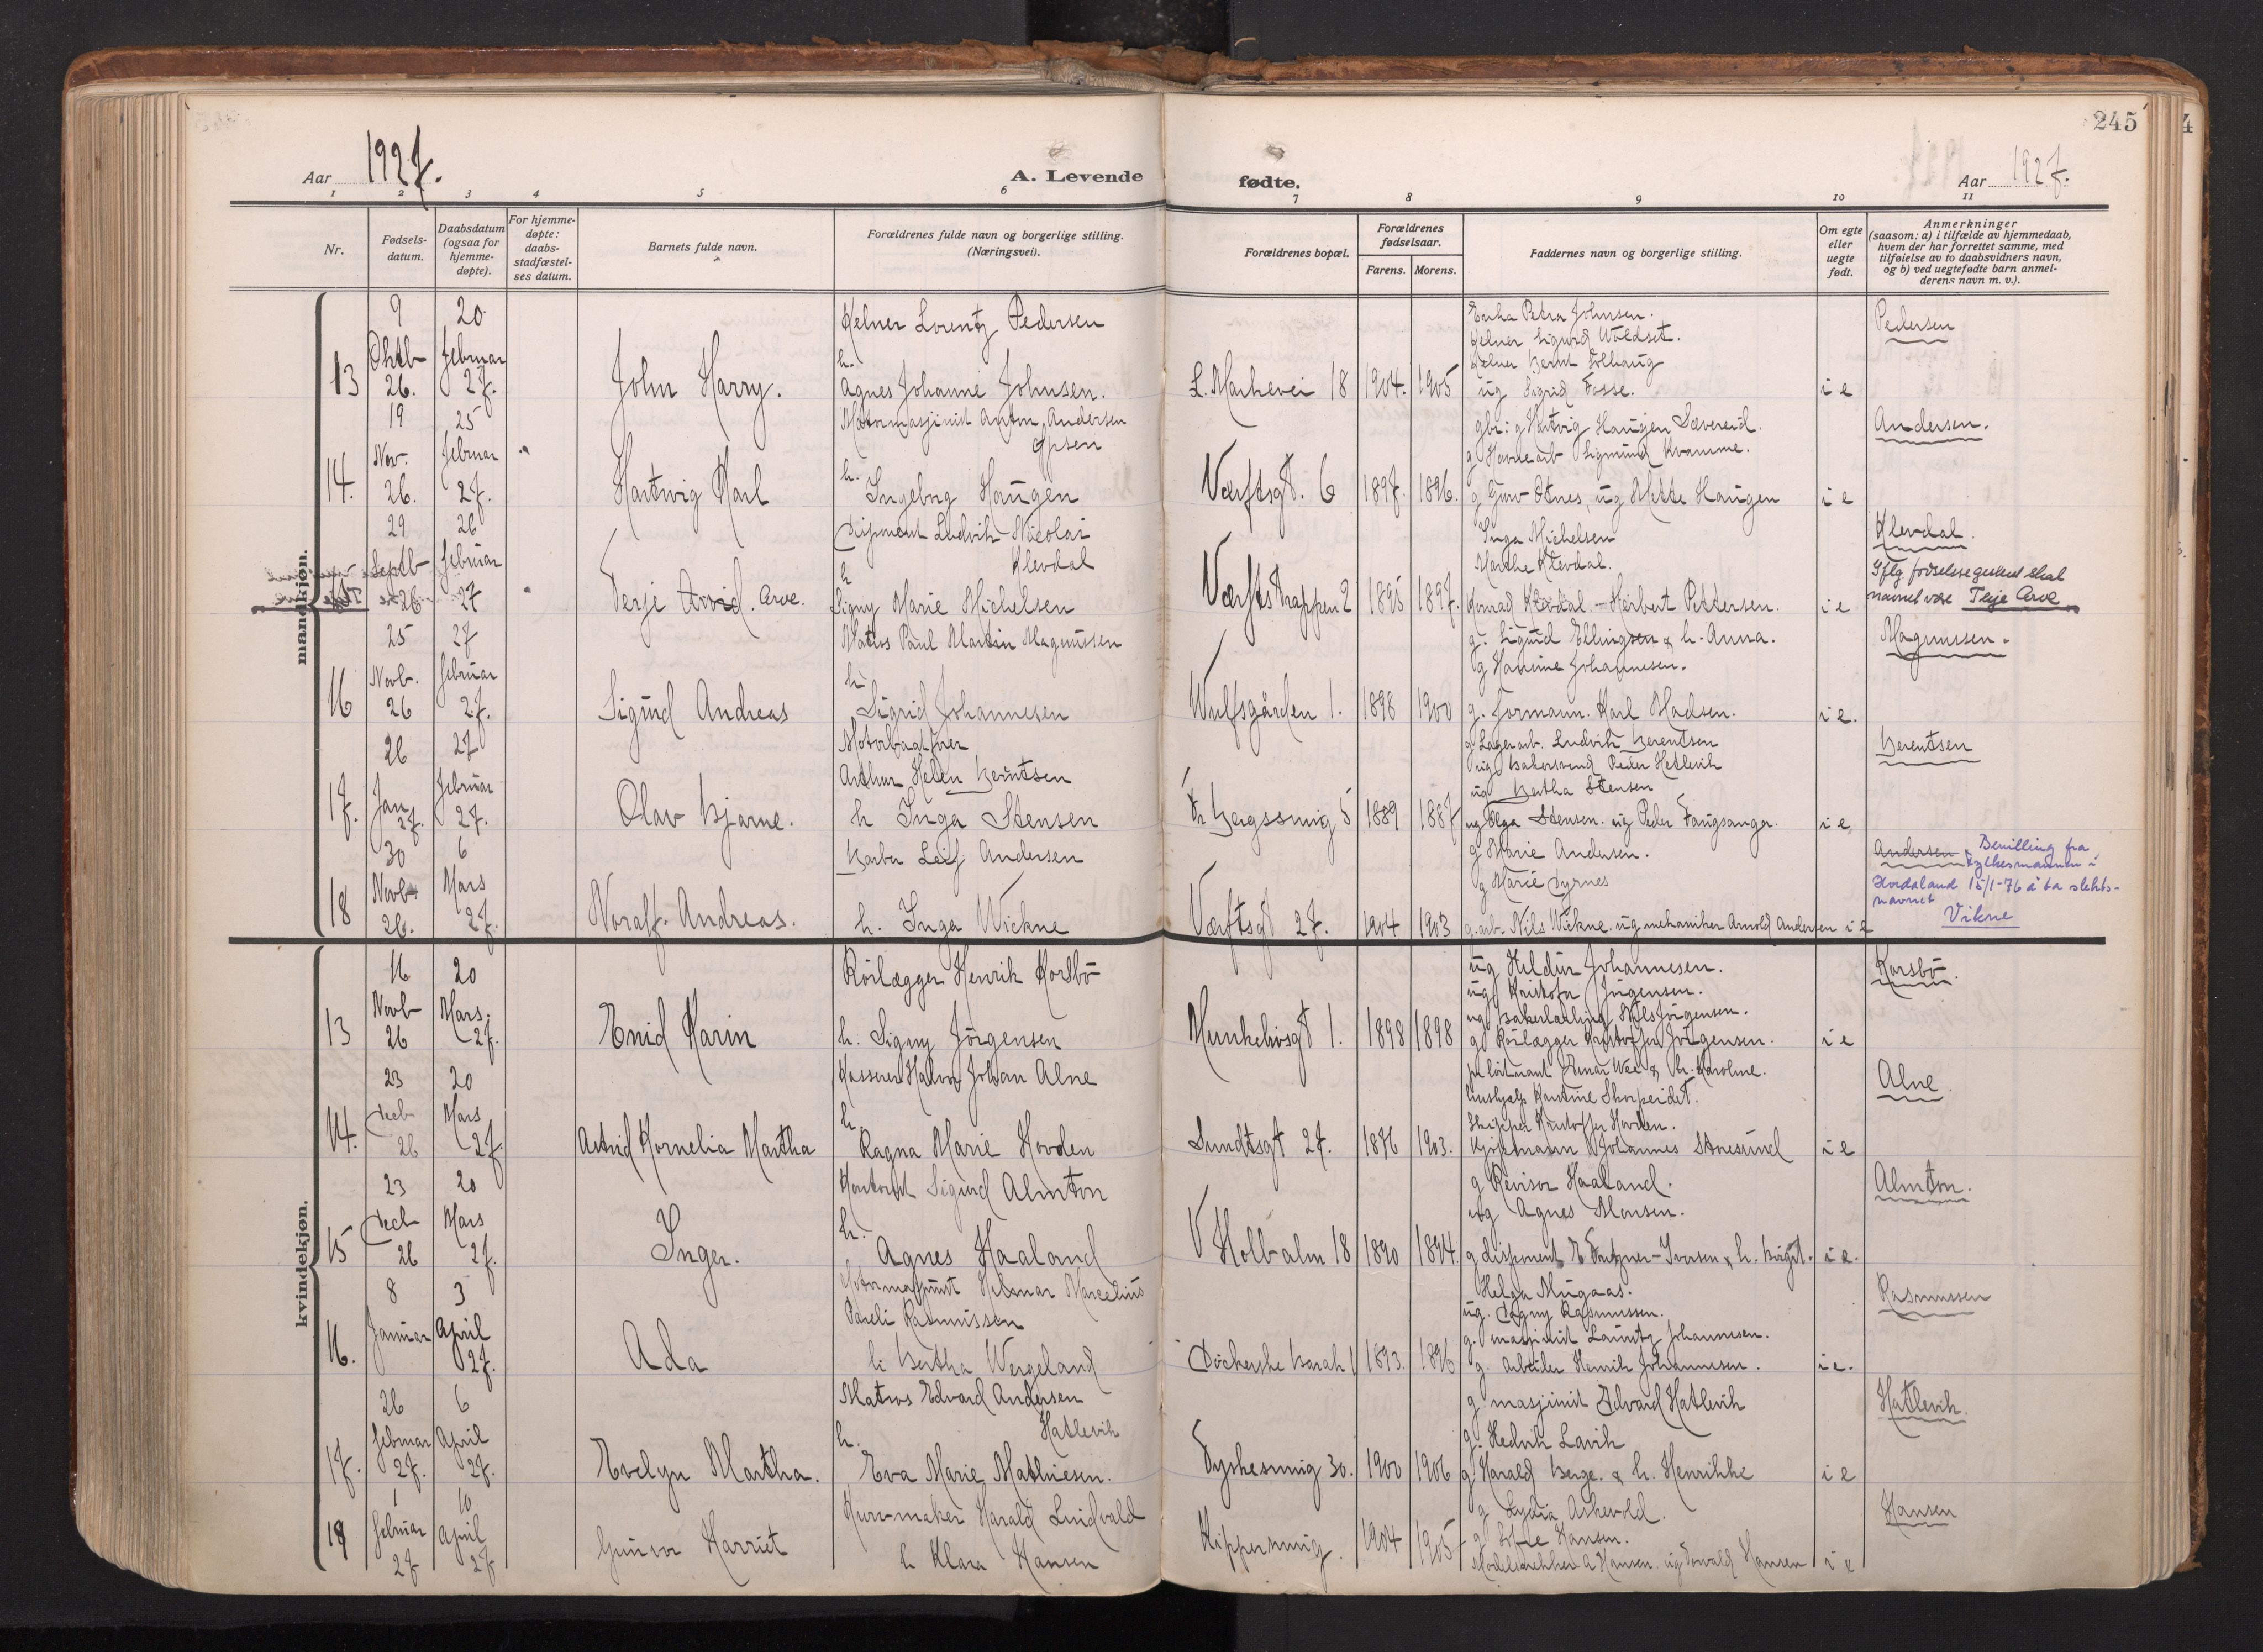 245
Aar 1927.
A. Levende
fødte.
Aar 1927.
1 2 3 4 5 6 7 8 9 10 11
Nr.
Fødsels-
datum.
Daabsdatum
(ogsaa for
hjemme-
døpte).
For hjemme-
døpte:
daabs-
stadfæstel-
ses datum.
Barnets fulde navn.
Forældrenes fulde navn og borgerlige stilling.
(Næringsvei).
Forældrenes bopæl.
Forældrenes
fødselsaar.
Farens. Morens.
Faddernes navn og borgerlige stilling.
Om egte
eller
uegte
født.
Anmerkninger
(saasom: a) i tilfælde av hjemmedaab,
hvem der har forrettet samme, med
tilføielse av to daabsvidners navn,
og b) ved uegtefødte barn anmel-
derens navn m. v.).
mandkjøn.
13
9
Oktb
26.
20
februar
27.
John Harry.
Kelner Lorentz Pedersen
h.
Agnes Johanne Johnsen.
L. Markevei 18
1904. 1905
Petra Johnsen.
Kelner Sigurd
Kelner Bernt
ug Sigrid Fosse.
i e
Pedersen
14.
19
Nov.
26.
25
februar
27.
Hartvig Karl
Motormasjinist Anton Andersen
h.
Ingeborg Haugen
Verftsgt. 6
1897. 1896.
g Hartvig Haugen Sævereid.
g Havnearb Sigmund Kvamme.
ug Mette Haugen
i e
Andersen.
29
Septb
26
26
februar
27
Terje Arvid. Arve.
Disponent Ludvik Nicolai
Klevdal
h
Signy Marie Michelsen
Verftstrappen 2
1895 1897.
Inga Michelsen
Marthe Klevdal.
Konrad Klevdal. - Herbert Pettersen.
i e
Klevdal.
Iflg. fødselsregistret skal
navnet være Terje Arve
16
25
Novb.
26
27
februar
27.
Sigurd Andreas
Matros Paul Martin Magnussen
h.
Sigrid Johannesen
Wulfsgården 1.
1898 1900
g. Sigurd Ellingsen & h. Anna.
g Hansine Johannesen.
g. formann. Karl Madsen.
i e.
Magnussen.
17.
26
Jan
27.
27
februar
27.
Olav Bjarne.
Motorbaatfører
Arthur Helen Berntsen
h Inga Stensen
5
1889 1887
g Lagerarb. Ludvik Berentsen
ug Bakersvend Peder Hetlevik
ug Bertha Stensen
ug Olga Stensen. ug Peder Fangsanger.
i e
Berentsen
18
30
Novb.
26.
6
Mars
27.
Noralf. Andreas.
Barber Leif Andersen
h. Inga Wickne
Verftsgt 27.
1904 1903
g Marie Andersen.
g Marie Dyrnes
g. arb. Nils Wickne. ug mekaniker Arnold Andersen
i e
Andersen Bevilling fra
Fylkesmannen i
Hordaland 15/1-76 å ta slekts-
navnet
Vikne
kvindekjøn.
13
16
Novb
26
20
Mars.
27.
Enid Karin
Rörlægger Henrik Korsbö
h. Signy Jörgensen
Munkelivsgt 1.
1898 1898
ug Heldur Johannesen.
ug Jörgensen.
ug Bakerlærling Nils Jörgensen.
g Rörlægger Kristoffer Jörgensen.
i e
Korsbö.
14.
23
Decb
26
20
Mars
27.
Astrid Kornelia Martha
Kasserer Halvor Johan Alne
h.
Ragna Marie Hovden
Sundtsgt 27.
1876 1903.
Einar Wee & h. Karoline.
Skipper Kristoffer Hovden.
Kjøbmann Johannes Storesund
i e
Alne.
15
23
Decb
26
20
Mars
27.
Inger.
Kontorist Sigurd Almton
h.
Agnes Haaland
V Holb-alm 18
1890 1894.
g Revisor Haaland.
ug Agnes Monsen.
g disponent E - Iversen & h. Birgit.
i e.
Almton.
16.
8
Januar
3
April
27.
Ada
Motormasjinist Hilmar Marcelius
Pareli Rasmussen
h Bertha Wergeland
1893. 1896
Helga Mugaas.
ug. Dagny Rasmussen.
g. masjinist Lauritz Johannesen.
g. Arbeider Henrik Johannesen.
i e.
Rasmussen
17.
26
februar
27.
6
April
27.
Evelyn Martha.
Matros Edvard Andersen
Hatlevik
h.
Eva Marie Mathiesen.
Tyskesmug 30.
1900 1906
g masjinist Edvard Hatlevik
g. Hedvik Lavik
g Harald Berge. & h. Henrikke
i e
Hatlevik.
18
1
februar
27
10
April
27
Gunvor Harriet
Kurvmaker Harald Lindvald
h Klara Hansen
Kippersmug.
1904 1905
g Lydia Askevold.
g Sofie Hansen.
Modelsnekker A Hansen. ug Hansen
i e
Hansen